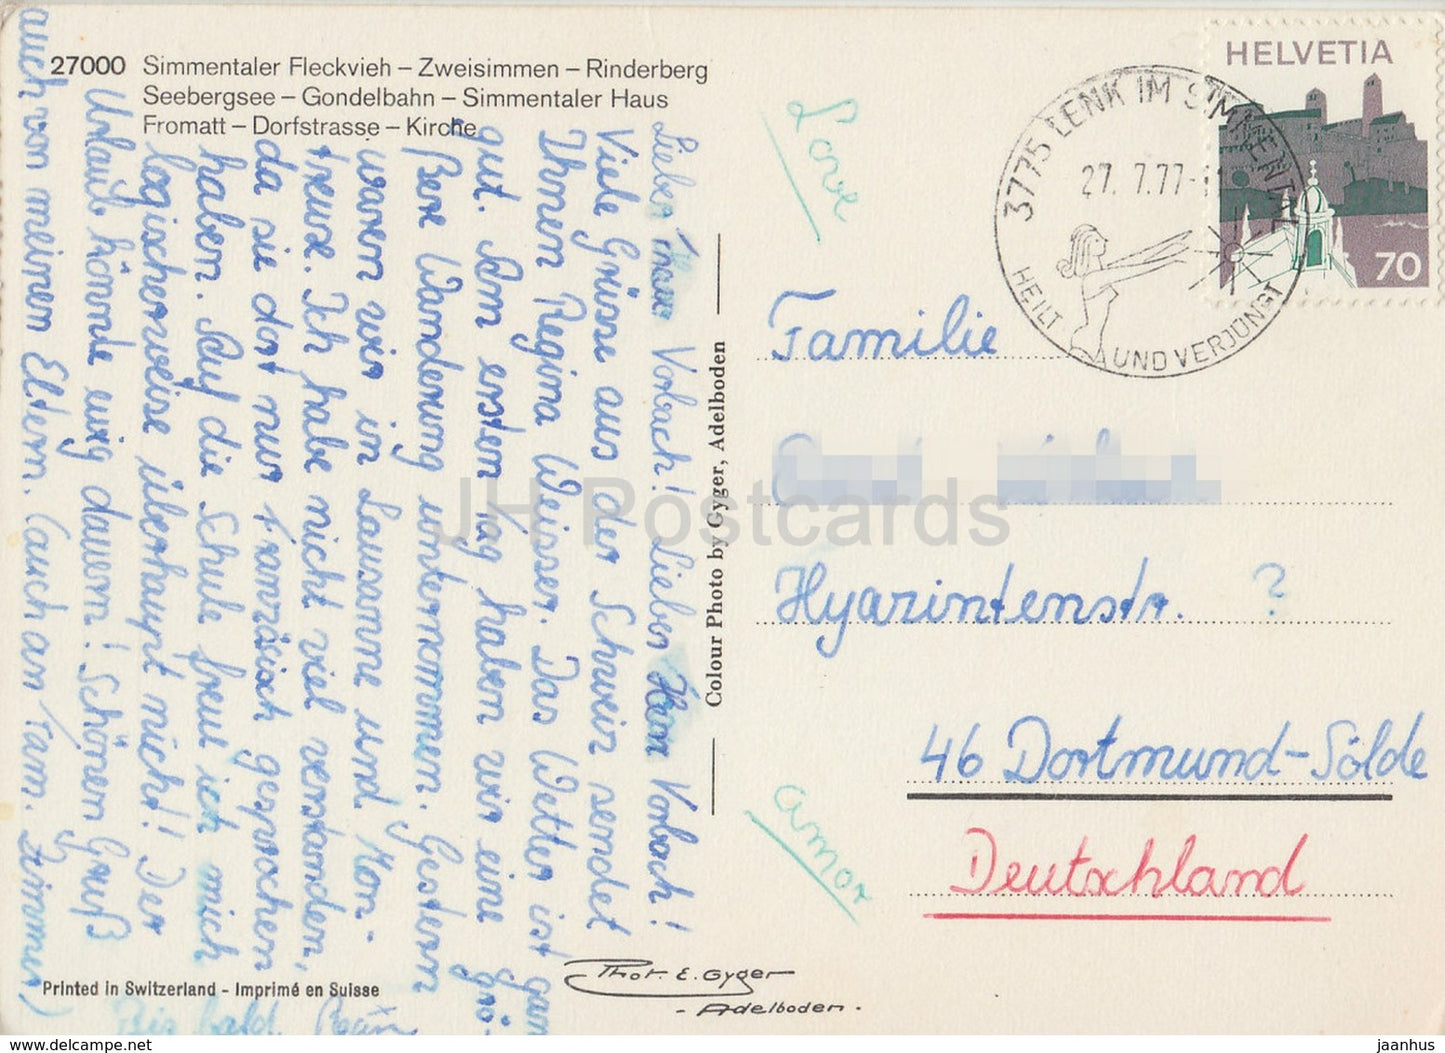 27000 Simmentaler Fleckvieh – Zweisimmen – Rinderberg
Seebergsee – Gondelbahn – Simmentaler Haus
Fromatt – Dorfstrasse – Kirche
Liebe Frau Vorbach! Lieber Herr Vorbach!
Viele Grüsse aus der Schweiz sendet
Ihnen Regina Weisser. Das Wetter ist ganz
gut. Am ersten Tag haben wir eine grö-
ßere Wanderung unternommen. Gestern
waren wir in Lausanne und Mon-
treux. Ich habe nicht viel verstanden,
da sie dort nur französisch gesprochen
haben. Auf die Schule freut ich mich
logischerweise überhaupt nicht! Der
Urlaub könnte ewig dauern! Schönen Gruß
auch von meinen Eltern. (auch an Fam. Zimmer)
Bis bald
Printed in Switzerland - Imprimé en Suisse
Colour Photo by Gyger, Adelboden
Phot. E. Gyger
- Adelboden -
Love
Amor
HELVETIA
70
3775 LENK IM SIMMENTAL
27.7.77-11
HEILT UND VERJÜNGT
Familie
Hyazintenstr. ?
46 Dortmund-Sölde
Deutschland
JH Postcards
www.delcampe.net
jaanhus